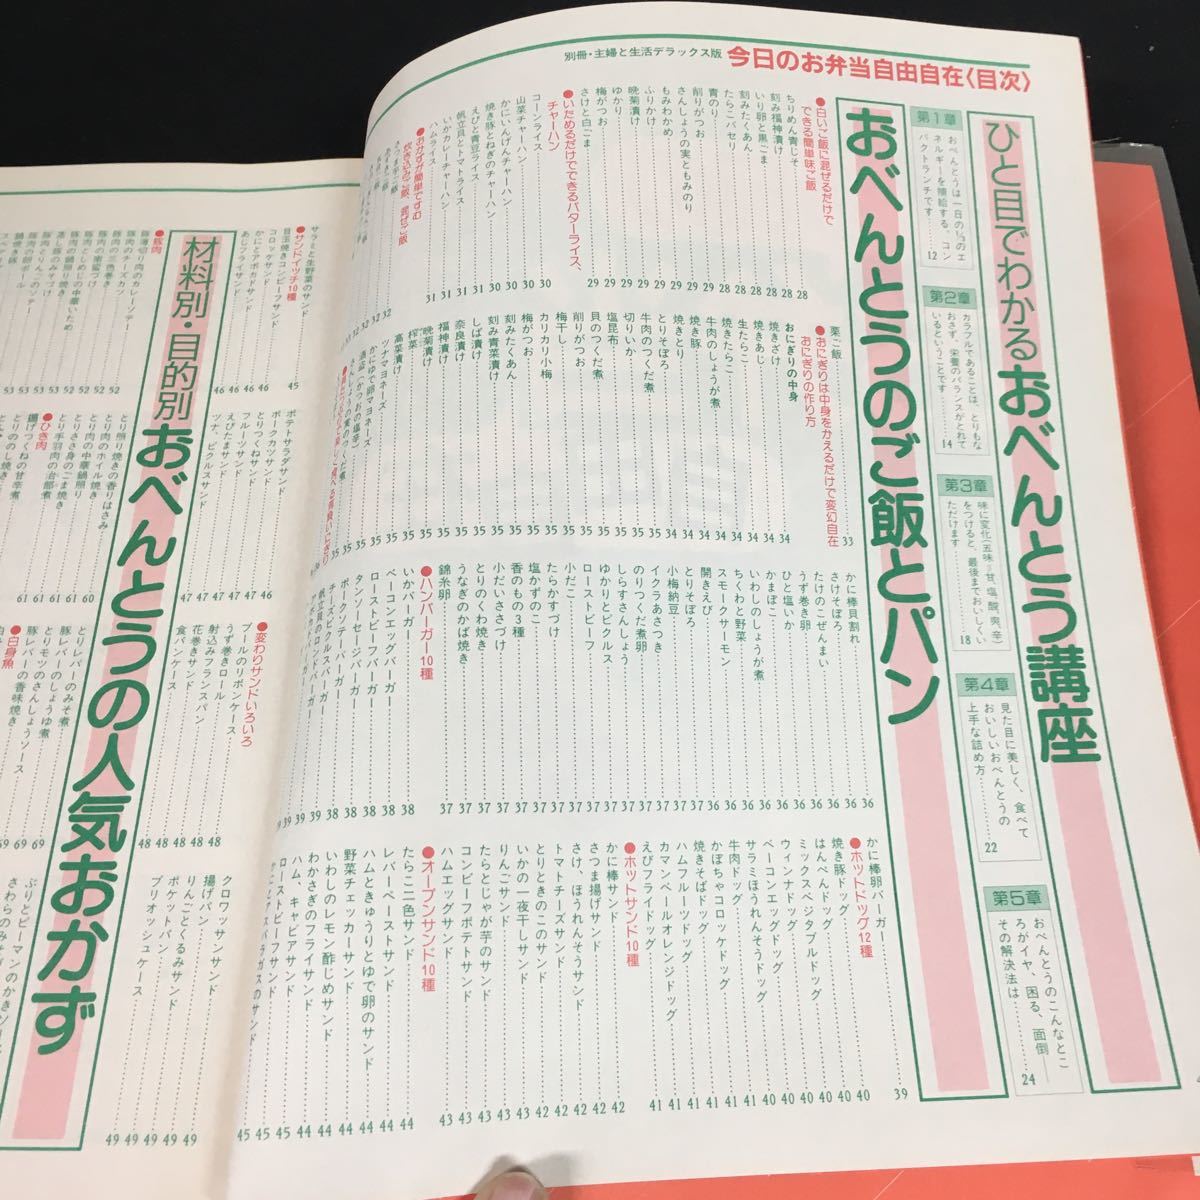 別冊・主婦と生活デラックス版 今日のお弁当自由自在〈目次〉
ひと目でわかるおべんとう講座
第1章
おべんとうは一日の⅓のエ
ネルギーを補給する、コン
パクトランチです。……12
第2章
カラフルであることは、とりもな
おさず、栄養のバランスがとれて
いるということです。……14
第3章
味に変化(五味=甘、塩、酸、爽、辛)
をつけると、最後までおいしくい
ただけます……18
第4章
見た目に美しく、食べて
おいしいおべんとうの
上手な詰め方……22
第5章
おべんとうのこんなとこ
ろがイヤ、困る、面倒——
その解決法は……24
おべんとうのご飯とパン
●白いご飯に混ぜるだけで
できる簡単味ご飯
ちりめん青じそ……28
刻み福神漬け……28
いり卵と黒ごま……28
刻みたくあん……28
たらこパセリ……28
青のり……28
削りがつお……29
さんしょうの実ともみのり……29
もみわかめ……29
ふりかけ……29
晩菊漬け……29
ゆかり……29
梅がつお……29
さけと白ごま……29
●いためるだけでできるバターライス、
チャーハン
コーンライス……30
山菜チャーハン……30
かにいんげんチャーハン……30
焼き豚とねぎのチャーハン……30
えびと青豆ライス……31
帆立貝とトマトライス……31
いかカレーチャーハン……31
ハムライス……31
●おかずが簡単ですむ
炊き込みご飯、混ぜご飯
栗ご飯……33
●おにぎりは中身をかえるだけで変幻自在
おにぎりの作り方
おにぎりの中身……34
焼きざけ……34
焼きあじ……34
生たらこ……34
焼きたらこ……34
牛肉のしょうが煮……34
焼き豚……34
焼きとり……34
とりそぼろ……35
牛肉のつくだ煮……35
切りいか……35
塩昆布……35
貝のつくだ煮……35
削りがつお……35
梅干し……35
カリカリ小梅……35
梅がつお……35
刻みたくあん……35
刻み青菜漬け……35
しば漬け……35
奈良漬け……35
福神漬け……35
晩菊漬け……35
搾菜……35
高菜漬け……35
ツナマヨネーズ……35
かにゆで卵マヨネーズ……35
酒盗(かつおの塩辛)……35
さんしょうの実のつくだ煮……35
かに棒貝割れ……36
さけそぼろ……36
たけのこぜんまい……36
うず巻き卵……36
ひと塩いか……36
かまぼこ……36
いわしのしょうが煮……36
ちくわと野菜……36
スモークサーモン……36
開きえび……36
とりそぼろ……36
小梅納豆……36
イクラあさつき……37
のりつくだ煮卵……37
しらすさんしょう……37
ゆかりとピクルス……37
ローストビーフ……37
小だこ……37
たらかすづけ……37
塩かずのこ……37
香のもの3種……37
小だいささづけ……37
とりのくわ焼き……37
うなぎのかば焼き……37
錦糸卵……37
●ハンバーガー10種
いかバーガー……38
ベーコンエッグバーガ……38
ローストビーフバーガ……38
タンソーセージバーガ……38
ポークソテーバーガー……38
チーズピクルスバーガー……39
かに棒卵バーガー……39
●ホットドッグ12種
焼き豚ドッグ……40
はんぺんドッグ……40
ミックスベジタブルドッグ……40
ウィンナドッグ……40
ベーコンエッグドッグ……40
サラミほうれんそうドッグ……40
牛肉ドッグ……41
かぼちゃコロッケドッグ……41
焼きそばドッグ……41
ハムフルーツドッグ……41
カマンベールオレンジドッグ……41
えびフライドッグ……41
●ホットサンド10種
かに棒サンド……42
さつま揚げサンド……42
さけ、ほうれんそうサンド……42
トマトチーズサンド……42
とりときのこのサンド……42
いかの一夜干しサンド……42
りんごサンド……43
たらとじゃが芋のサンド……43
コンビーフポテトサンド……43
ハムエッグサンド……43
●オープンサンド10種
たらこ二色サンド……44
レバーペーストサンド……44
ハムときゅうりとゆで卵のサンド……44
野菜チェッカーサンド……44
いわしのレモン酢じめサンド……44
わかさぎのフライサンド……44
ハム、キャビアサンド……45
ローストビーフサンド……45
サラミと生野菜のサンド……45
●サンドイッチ10種
目玉焼きコンビーフサンド……46
コロッケサンド……46
かにとアボカドサンド……46
あじフライサンド……46
ポテトサラダサンド……46
ポークカツサンド……47
とりつくねサンド……47
フルーツサンド……47
えびたまサンド……47
ツナ、ピクルスサンド……47
●変わりサンドいろいろ
ブールのリボンケース……48
うず巻きロール……48
射込みフランスパン……48
花巻きサンド……48
食パンケース……48
クロワッサンサンド……49
揚げパン……49
りんごとくるみサンド……49
ポケットパン……49
ブリオッシュケース……49
材料別・目的別おべんとうの人気おかず
●豚肉
豚薄切り肉のカレーソテー……52
豚肉のチーズカツ……52
豚肉の三色巻き……52
豚肉の南蛮づけ……52
豚肉としめじの中華いため……52
とり照り焼きの香りはさみ……60
とり肉のホイル焼き……60
とり肉の中華鍋照り……60
とりささ身のごま焼き……61
とり手羽肉の治部煮……61
●ひき肉
鶏つくねの甘辛煮……61
とりののし焼き……61
とりレバーのみそ煮……61
豚レバーのしょうゆ煮……61
とりモツのさんしょうソース……69
豚レバーの香味焼き……69
●白身魚
ぶりとピーマンのかき